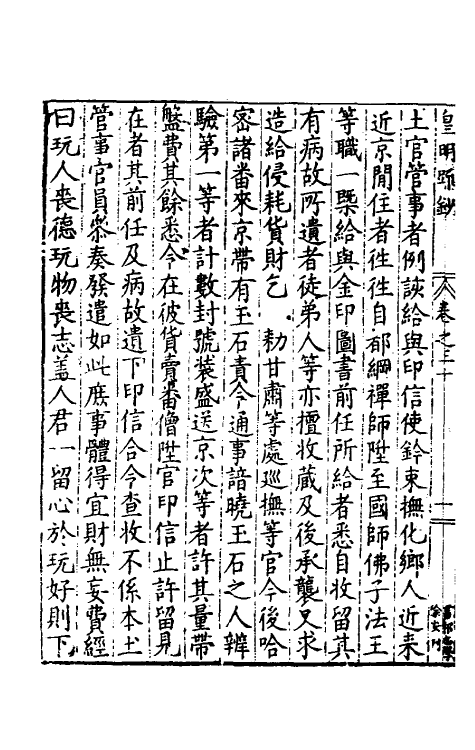 皇明疏鈔
卷之三十
土官管事者例該給與印信使鈐束撫化鄉人近来
近京閒住者徃徃自都綱禪師陞至國師佛子法王
等職一槩給與金印圖書前任所給者悉自收留其
有病故所遺者徒弟人等亦擅收蔵及後承襲又求
造給侵耗貨財乞　勑甘肅等處巡撫等官今後哈
密諸番來京帶有玉石責令通事諳曉玉石之人辨
驗第一等者計數封號裝盛送京次等者許其量帶
盤費其餘悉令在彼貨賣番僧陞官印信止許留見
在者其前任及病故遺下印信合令查收不係本土
管事官員叅奏發遣如此庶事體得宜財無妄費經
曰玩人喪德玩物喪志盖人君一留心於玩好則下